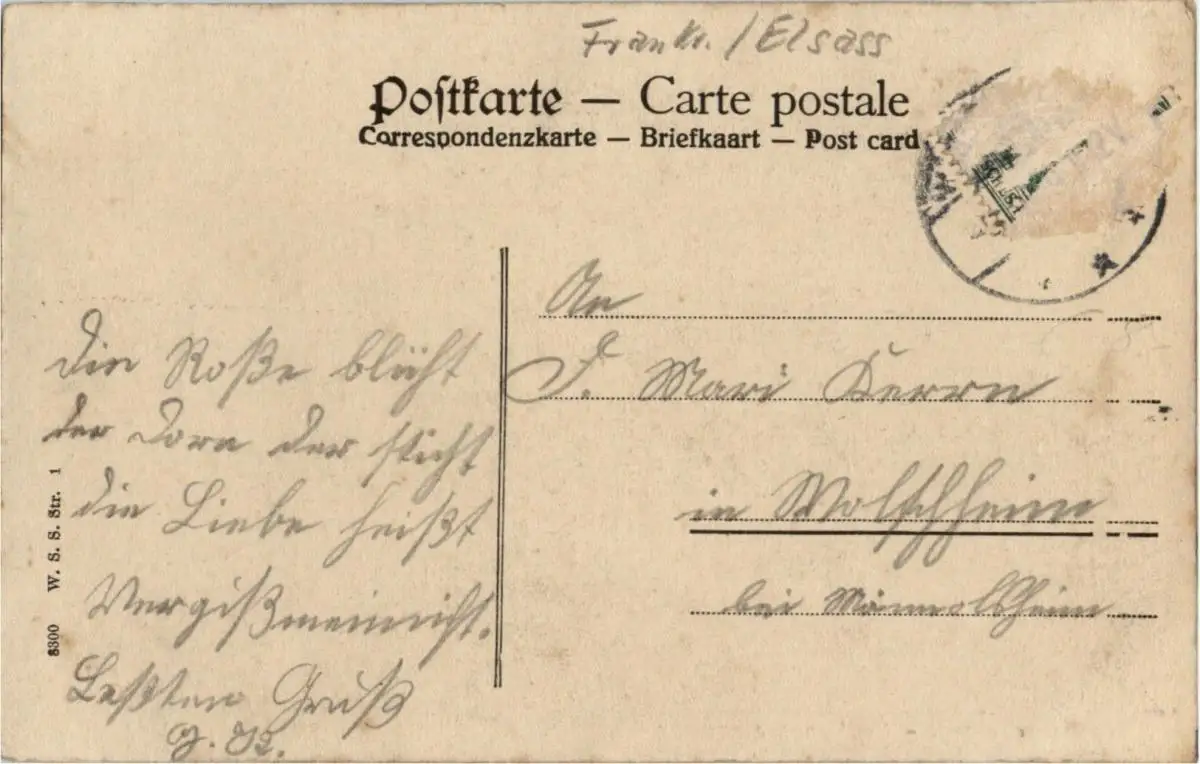 Frankr. / Elsass
Postkarte — Carte postale
Correspondenzkarte — Briefkaart — Post card
Die Roße blüht
der Dorn der sticht
die Liebe heißt
Vergißmeinnicht.
Beßten Gruß
An
F. Mari Kerrn
in Wolschheim
bei Männolsheim
8300 W. S. S. Str. 1